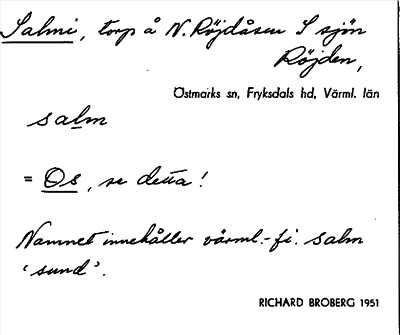 Salmi, torp å N. Röjdåsen S sjön
Röjden,
Östmarks sn, Fryksdals hd, Värml. län
salm
= Os, se detta!
Namnet innehåller värml.-fi. salm
'sund'.
RICHARD BROBERG 1951